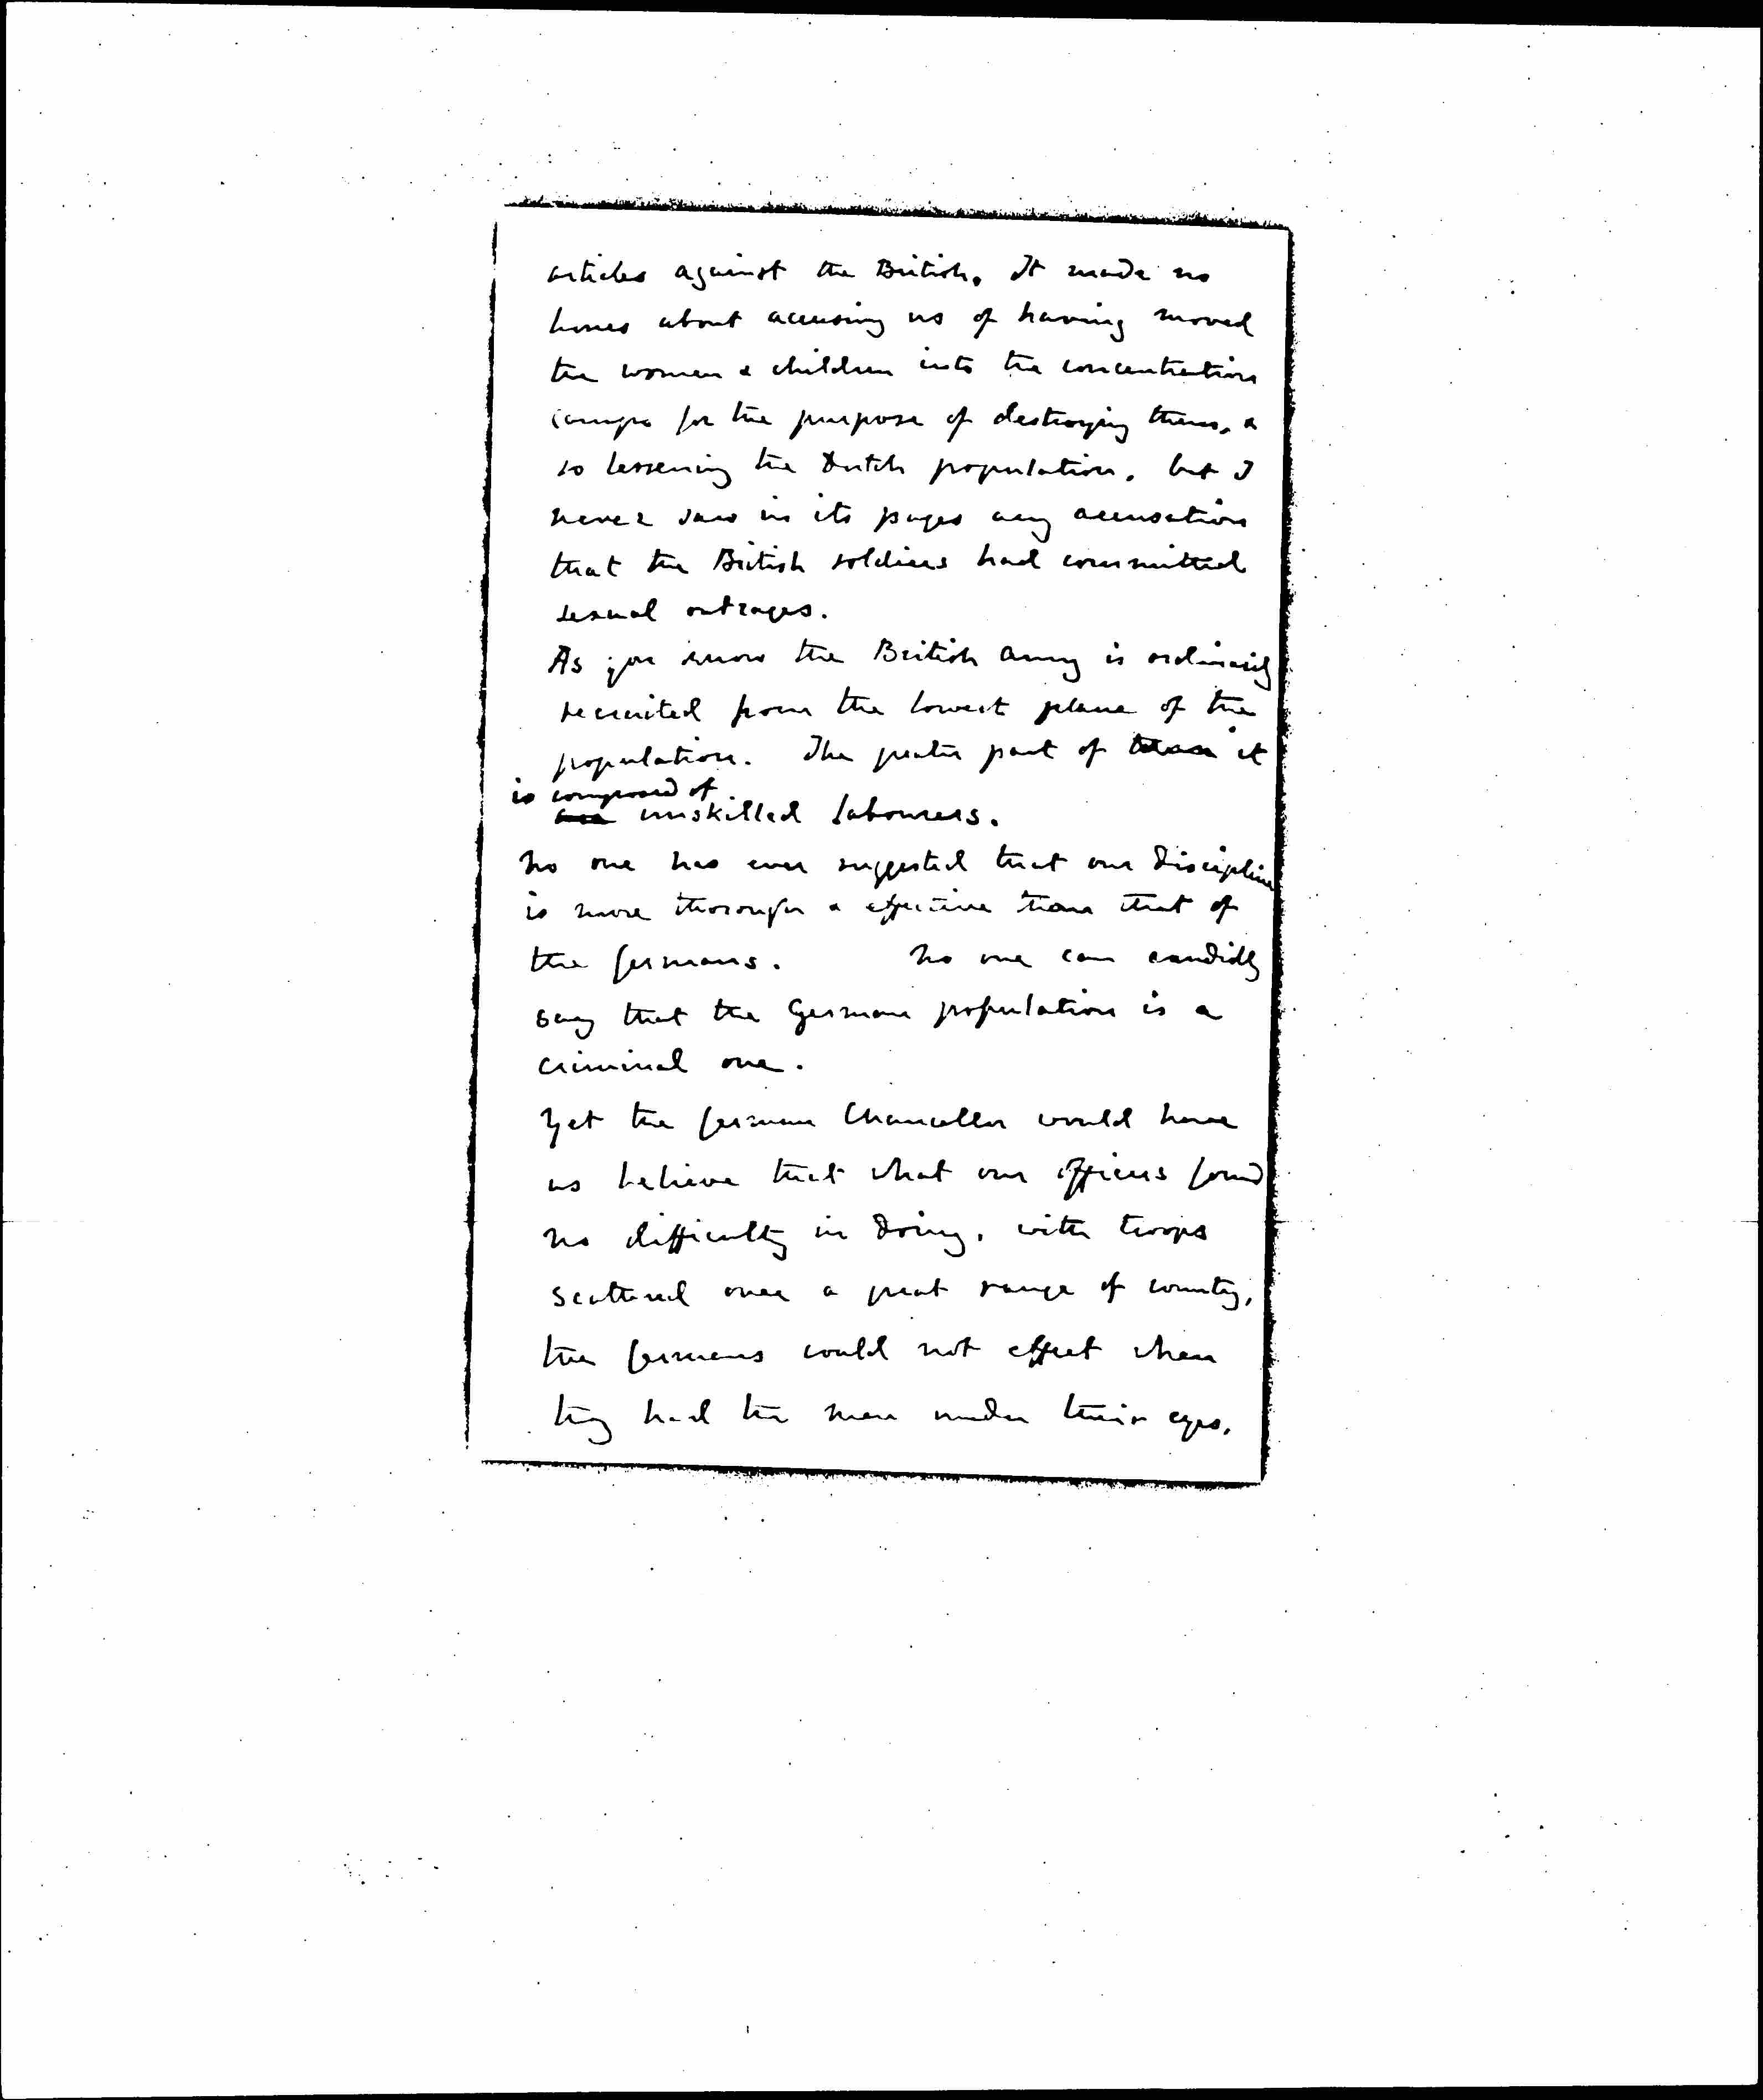 articles against the British. It made no
bones about accusing us of having moved
the women & children into the concentration
camps for the purpose of destroying them, &
so lessening the Dutch population, but I
never saw in its pages any accusation
that the British soldiers had committed
sexual outrages.
As you know the British army is ordinarily
recruited from the lowest plane of the
population. The greater part of it
is composed of
unskilled labourers.
No one has ever suggested that our discipline
is more thorough & effective than that of
the Germans. No one can candidly
say that the German population is a
criminal one.
Yet the German Chancellor would have
us believe that what our officers found
no difficulty in doing, with troops
scattered over a great range of country,
the Germans could not effect when
they had the men under their eyes.